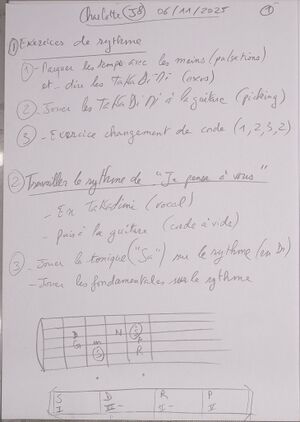 Charlotte (JS) 06/11/2025 1
① Exercices de rythme
① - Marquer les temps avec les mains (pulsations)
et - dire les TaKaDiMi (voix)
② - Jouer les TaKaDiMi à la guitare (picking)
③ - Exercice changement de corde (1, 2, 3, 2)
② Travailler le rythme de "Je pense à vous"
- En TaKaDimi (vocal)
- puis à la guitare (corde à vide)
③ - Jouer la tonique ("Sa") sur le rythme
- Jouer les fondamentales sur le rythme
S D R P
I II- V